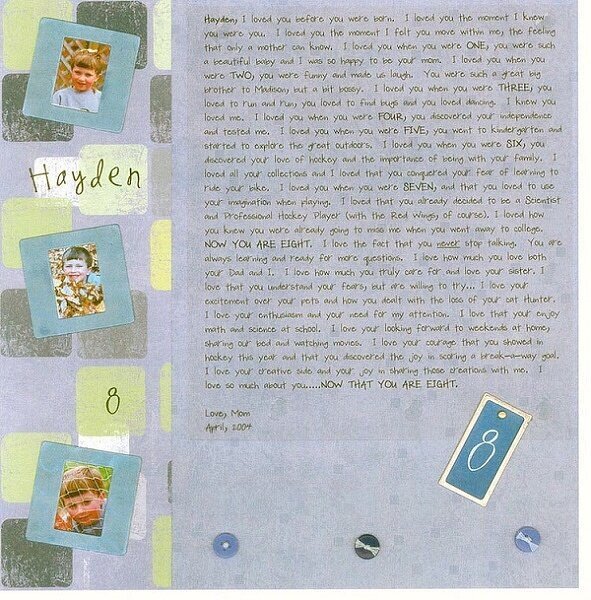 Hayden, I loved you before you were born. I loved you the moment I knew
you were you. I loved you the moment I felt you move within me, the feeling
that only a mother can know. I loved you when you were ONE, you were such
a beautiful baby and I was so happy to be your mom. I loved you when you
were TWO, you were funny and made us laugh. You were such a great big
brother to Madison, but a bit bossy. I loved you when you were THREE, you
loved to run and run, you loved to find bugs and you loved dancing. I knew you
loved me. I loved you when you were FOUR, you discovered your independence
and tested me. I loved you when you were FIVE, you went to kindergarten and
started to explore the great outdoors. I loved you when you were SIX, you
discovered your love of hockey and the importance of being with your family. I
loved all your collections and I loved that you conquered your fear of learning to
ride your bike. I loved you when you were SEVEN, and that you loved to use
your imagination when playing. I loved that you already decided to be a Scientist
and Professional Hockey Player (with the Red Wings, of course). I loved how
you knew you were already going to miss me when you went away to college.
NOW YOU ARE EIGHT. I love the fact that you never stop talking. You are
always learning and ready for more questions. I love how much you love both
your Dad and I. I love how much you truly care for and love your sister. I
love that you understand your fears, but are willing to try... I love your
excitement over your pets and how you dealt with the loss of your cat Hunter.
I love your enthusiasm and your need for my attention. I love that your enjoy
math and science at school. I love your looking forward to weekends at home,
sharing our bed and watching movies. I love your courage that you showed in
hockey this year and that you discovered the joy in scoring a break-a-way goal.
I love your creative side and your joy in sharing those creations with me. I
love so much about you.....NOW THAT YOU ARE EIGHT.
Love, Mom
April, 2004
Hayden
8
8